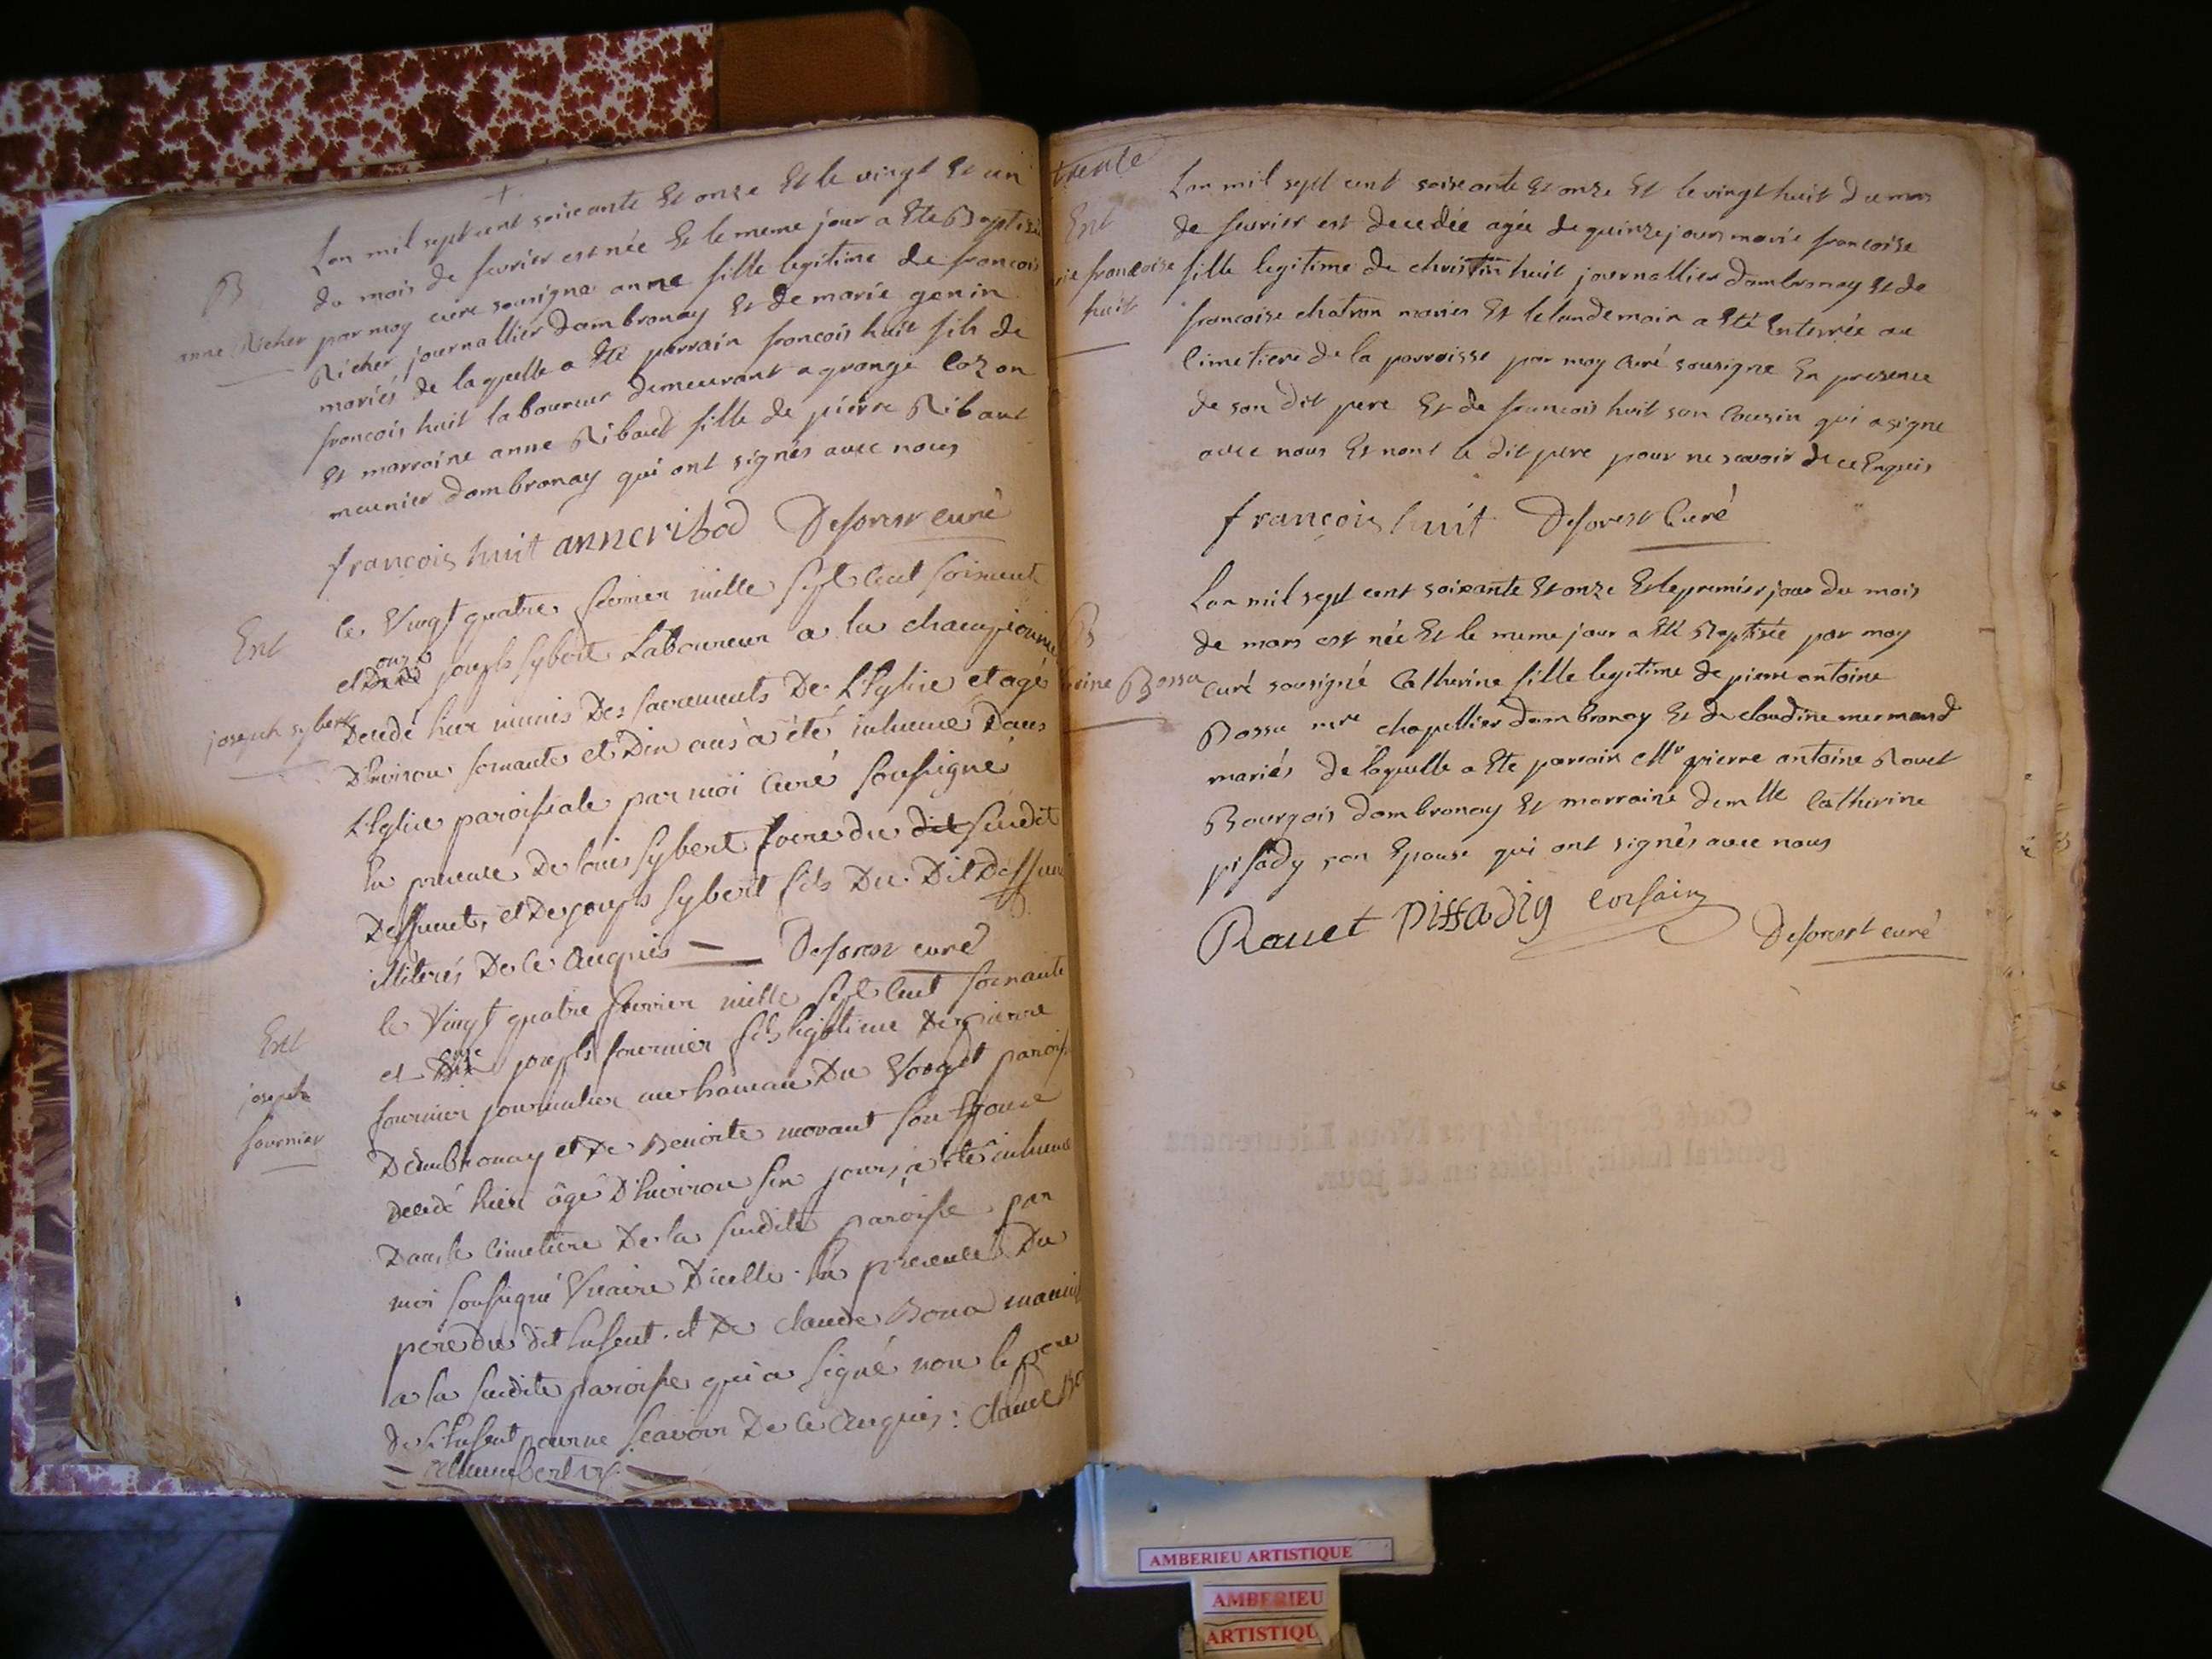 B
anne Richer
Lan mil sept cent soixante Et onze Et le vingt Et un
du mois de fevrier est née Et le meme jour a Ete Baptisée
par moy curé sousigné anne fille legitime de francois
Richer journallier dambronay Et de marie genin
mariés de laquelle a Eté parrain francois huit fils de
francois huit laboureur demeurant a grange cozon
Et marraine anne Ribaud fille de pierre Ribaud
meunier dambronay qui ont signés avec nous
françois huit anne ribod Deforest curé
Ent
joseph sybert
le Vingt quatre fevrier mille sept cent soixante
et onze joseph sybert Laboureur a la championnie
Decedé hier munis Des sacrements De L'Eglise et agé
D'Environ soixante et Dix ans à été inhumé Dans
L'Eglise paroissiale par moi Curé soussigné
En presence De louis sybert frere du dit susdit
Deffunt, et De joseph sybert fils Du Dit Deffunt
illiterés De ce Enquis Deforest curé
Ent
joseph
fournier
le Vingt quatre fevrier mille sept Cent soixante
et onze joseph fournier fils legitime De pierre
fournier journalier au hameau Du Vorget paroisse
D'ambronay et De Benoite morant son Epouse
Decedé hier âgé D'Environ six jours, a été inhumé
Dans le Cimetiere De la susdite paroisse par
moi soussigné Vicaire D'icelle. En presence Du
pere Du dit Enfant. et De Claude Bona
a la susdite paroisse qui a signé non le pere
de l'Enfant pour ne scavoir De ce Enquis: claude
trente
Ent
francoise
huit
Lan mil sept cent soixante Et onze Et le vingt huit du mois
de fevrier est decedée agée de quinze jours marie francoise
fille legitime de christin huit journallier dambronay Et de
francoise chatron mariés Et le landemain a Eté Enterrée au
Cimetiere de la parroisse par moy Curé sousigné En presence
de son dit pere Et de francois huit son Cousin qui a signé
avec nous Et nont le dit pere pour ne scavoir de ce Enquis
françois huit Deforest Curé
B
Bossu
Lan mil sept cent soixante Et onze Et le premier jour du mois
de mars est née Et le meme jour a Eté Baptisée par moy
Curé sousigné Catherine fille legitime de pierre antoine
Bossu mre chapellier dambronay Et de claudine mermand
mariés de laquelle a Ete parrain Mr pierre antoine Rouet
Bourgois dambronay Et marraine demlle Catherine
pisady son Epouse qui ont signés avec nous
Rouet Piffadiy corsain Deforest curé
AMBERIEU ARTISTIQUE
AMBERIEU
ARTISTIQU